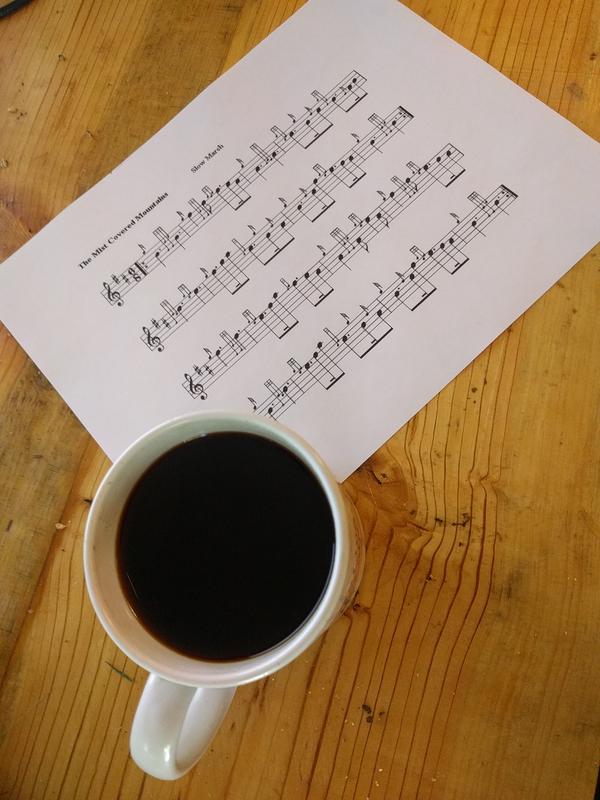 The Mist Covered Mountains
Slow Marsh
6
8